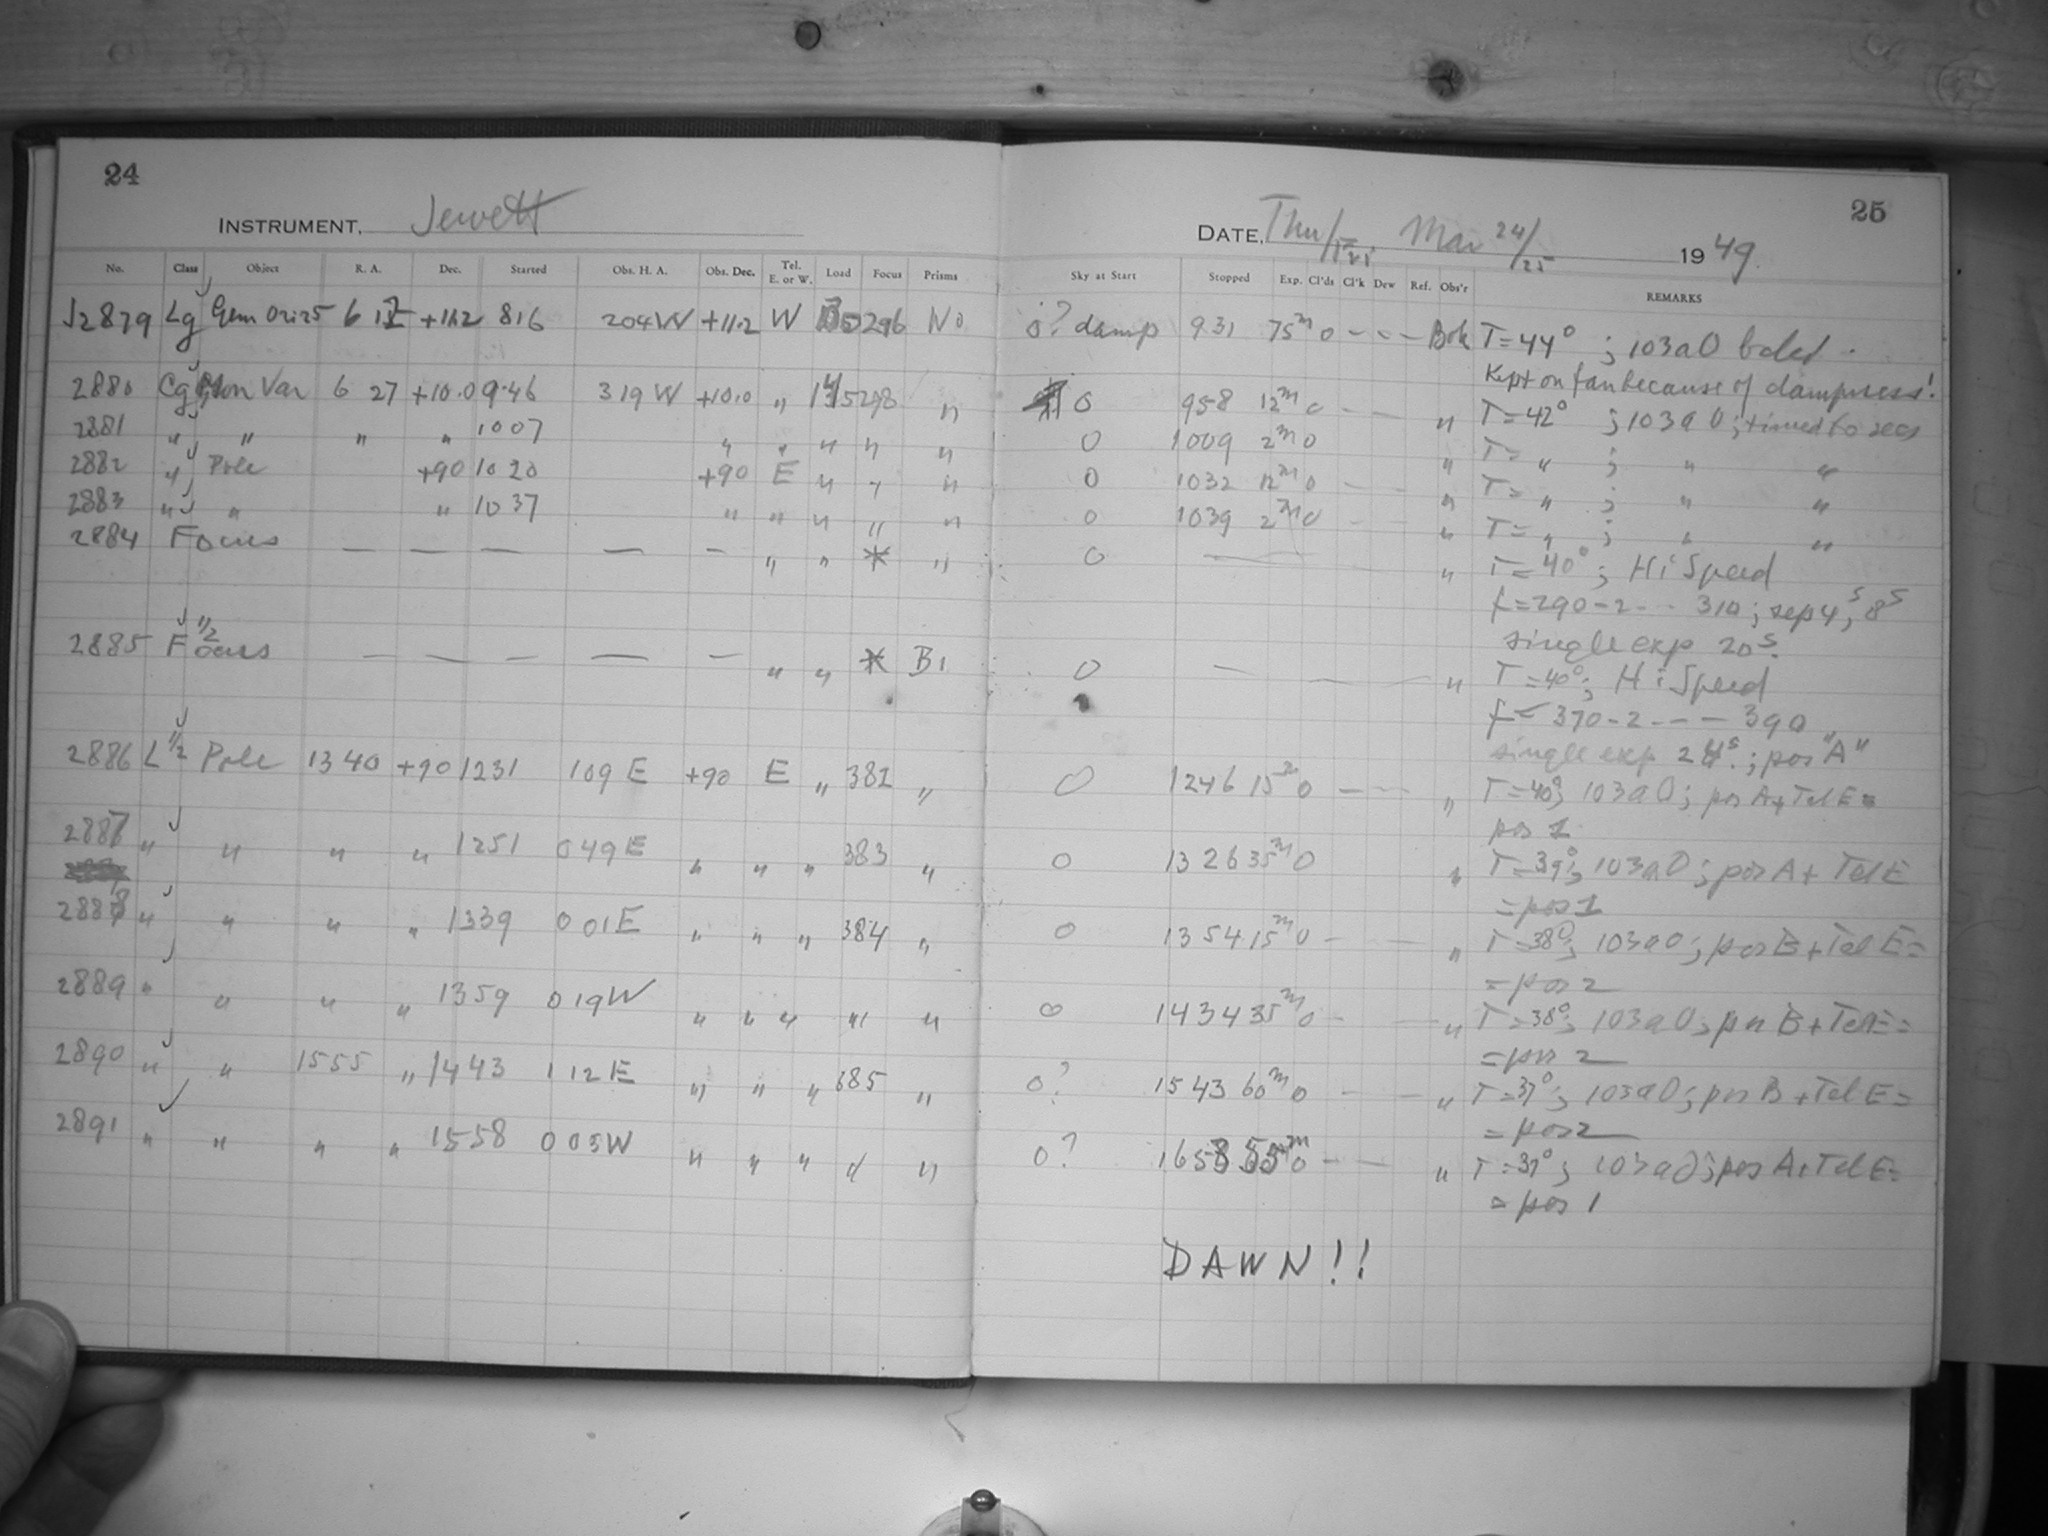 24
INSTRUMENT. Jewett
No. Class Object R. A. Dec. Started Obs. H. A. Obs. Dec. Tel. E. or W. Load Focus Prisms
J2879 Lg Gem 0225 6 +11.2 816 204W +11.2 W 296 No
2880 Cg Mon Var 6 27 +10.0 9.46 319 W +10.0 " 298 "
2881 " " " " 1007 " " " " "
2882 " Pole +90 1020 +90 E " " "
2883 " " " 1037 " " " " "
2884 Focus — — — — — " " * "
2885 F 1/2 Focus — — — — — " " * B1
2886 L 1/2 Pole 1340 +90 1231 109 E +90 E " 382 "
2887 " " " " 1251 049E " " " 383 "
2888 " " " " 1339 001E " " " 384 "
2889 " " " " 1359 019W " " " " "
2890 " " 1555 " 1443 112E " " " 685 "
2891 " " " " 1558 003W " " " " "
25
DATE. Thu/ Mar 24/25 1949
Sky at Start Stopped Exp. Cl'ds Cl'k Dew Ref. Obs'r REMARKS
0? damp 931 75m 0 - - - Bok T=44° ; 103aO baked.
Kept on fan because of dampness!
0 958 12m 0 - - " T=42° ; 103aO; timed 60 secs
0 1009 2m 0 " T= " ; " "
0 1032 12m 0 - - " T= " ; " "
0 1039 2m 0 - - " T= " ; " "
0 — " T=40°; Hi Speed
f=290-2--- 310; sep 4s, 8s
single exp 20s.
0 — — — — " T=40°; Hi Speed
f= 370-2---- 390
single exp 24s.; pos "A"
0 1246 15m 0 - - - " T=40°; 103aO; pos A+Tel E=
pos 1
0 1326 35m 0 " T=39°; 103aO; pos A+ Tel E
=pos 1
0 1354 15m 0 - - - " T=38°; 103aO; pos B+Tel E=
=pos 2
0 1434 35m 0 - - " T=38°; 103aO; pos B+Tel E=
=pos 2
0? 1543 60m 0 - - " T=37°; 103aO; pos B+Tel E=
=pos 2
0? 1653 55m 0 - - " T=37°; 103aO; pos A+Tel E=
= pos 1
DAWN!!